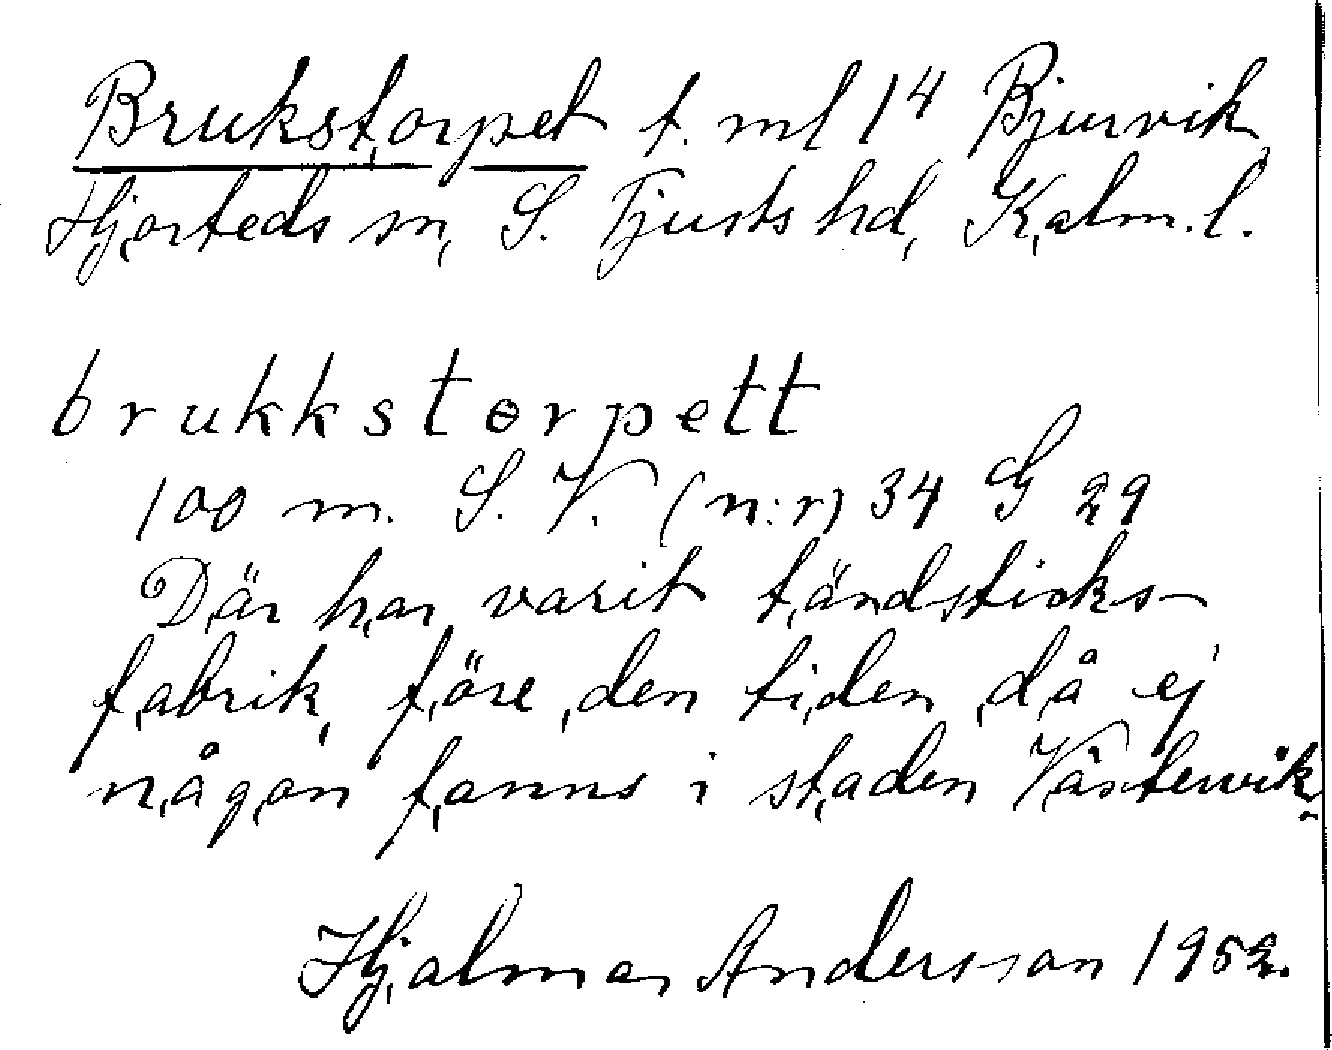 Brukstorpet t. ml 14 Bjurvik
Hjorteds sn, S. Tjusts hd, Kalm. l.
brukkstorpett
100 m. S. V. (n:r) 34 G 29
Där har varit tändsticks-
fabrik, före den tiden då ej
någon fanns i staden Västervik.
Hjalmar Andersson 1952.